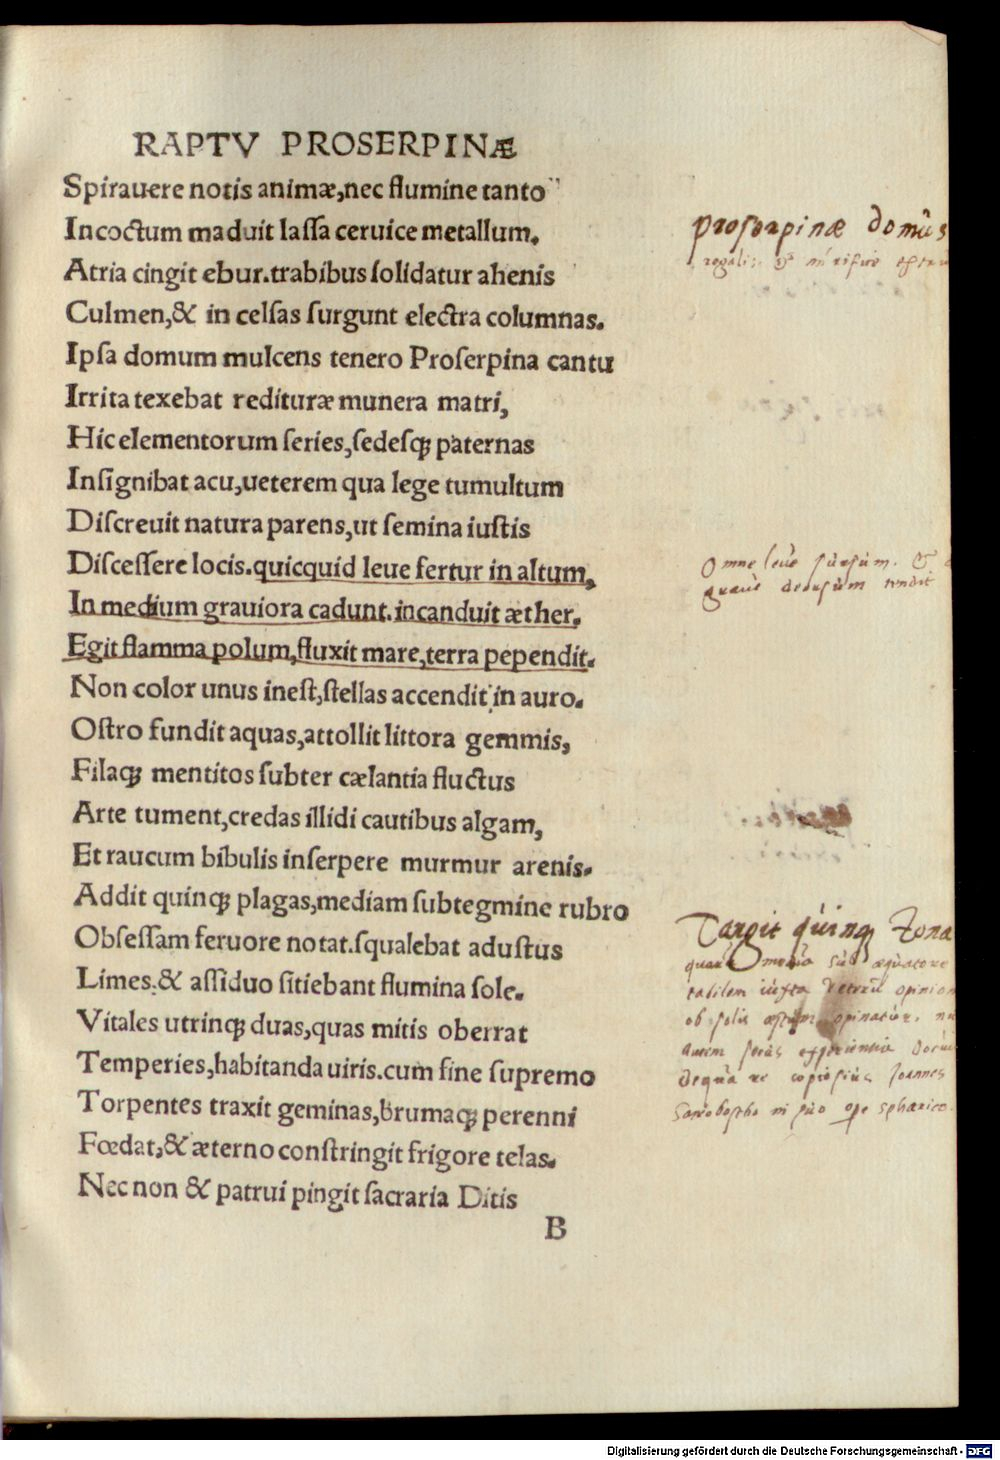 RAPTV PROSERPINÆ
Spirauere notis animæ,nec flumine tanto
Incoctum maduit laſſa ceruice metallum.
Atria cingit ebur.trabibus ſolidatur ahenis
Culmen,& in celſas ſurgunt electra columnas.
Ipſa domum mulcens tenero Proſerpina cantu
Irrita texebat redituræ munera matri,
Hic elementorum ſeries,ſedeſqꝫ paternas
Inſignibat acu,ueterem qua lege tumultum
Diſcreuit natura parens,ut ſemina iuſtis
Diſceſſere locis.quicquid leue fertur in altum,
In medium grauiora cadunt.incanduit æther.
Egit flamma polum,fluxit mare,terra pependit.
Non color unus ineſt,ſtellas accendit in auro.
Oſtro fundit aquas,attollit littora gemmis,
Filaqꝫ mentitos ſubter cælantia fluctus
Arte tument,credas illidi cautibus algam,
Et raucum bibulis inſerpere murmur arenis.
Addit quinqꝫ plagas,mediam ſubtegmine rubro
Obſeſſam feruore notat.ſqualebat aduſtus
Limes.& aſſiduo ſitiebant flumina ſole.
Vitales utrinqꝫ duas,quas mitis oberrat
Temperies,habitanda uiris.cum fine ſupremo
Torpentes traxit geminas,brumaqꝫ perenni
Fœdat,& æterno conſtringit frigore telas.
Nec non & patrui pingit ſacraria Ditis
B
proſerpinæ domus
regalis &
Omne leue ſurſum. &
graue deorſum tendit
Tangit quinqꝫ zona
sub æquatore
iuxta opinion
ob ſolis æstum opinatur.
autem experientia
de qua re copiosius Joannes
in suo sphærico.
Digitalisierung gefördert durch die Deutsche Forschungsgemeinschaft - DFG